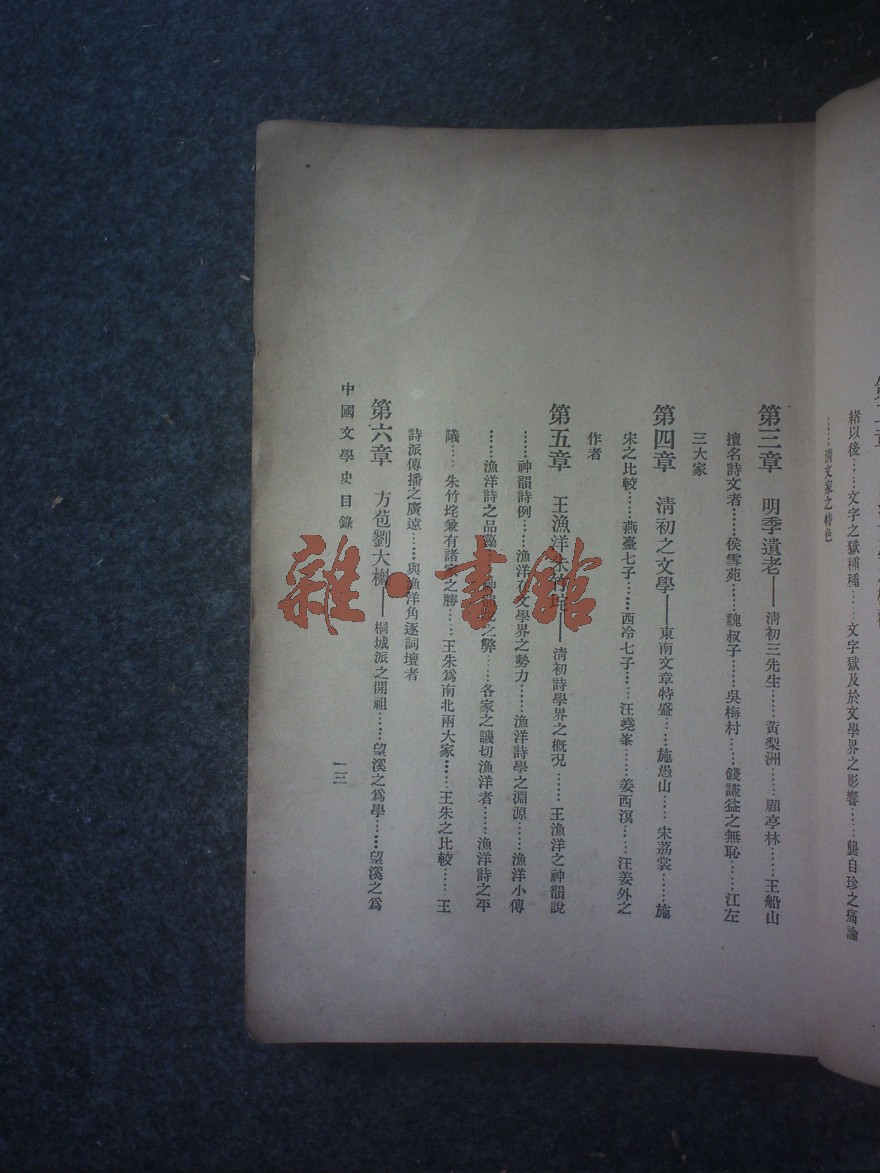 緒以後……文字之獄種種……文字獄及於文學界之影響……龔自珍之痛論
……清文家之特色
第三章　明季遺老——清初三先生……黃梨洲……顧亭林……王船山
擅名詩文者……侯雪苑……魏叔子……吳梅村……錢謙益之無恥……江左
三大家
第四章　清初之文學——東南文章特盛……施愚山……宋荔裳……施
宋之比較……燕臺七子……西泠七子……汪堯峯……姜西溟……汪姜外之
作者
第五章　王漁洋朱竹垞——清初詩學界之概況……王漁洋之神韻說
……神韻詩例……漁洋在文學界之勢力……漁洋詩學之淵源……漁洋小傳
……漁洋詩之品藻……神韻說之弊……各家之譏切漁洋者……漁洋詩之平
議……朱竹垞兼有諸家之勝……王朱爲南北兩大家……王朱之比較……王
詩派傳播之廣遠……與漁洋角逐詞壇者
第六章　方苞劉大櫆——桐城派之開祖……望溪之爲學……望溪之爲
中國文學史目錄
一三
雜·書館